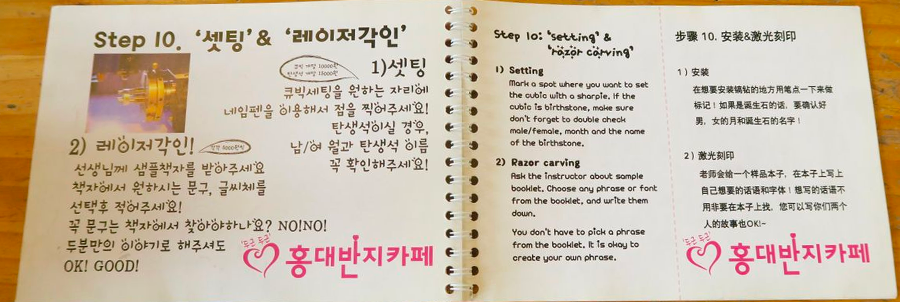 Step 10. '셋팅' & '레이저각인'
큐빅 개당 10000원
탄생석 개당 15000원
1)셋팅
큐빅세팅을 원하는 자리에
네임펜을 이용해서 점을 찍어주세요!
탄생석이실 경우,
남/여 월과 탄생석 이름
꼭 확인해주세요!
2) 레이저각인!
선생님께 샘플책자를 받아주세요
책자에서 원하시는 문구, 글씨체를
선택후 적어주세요!
꼭 문구는 책자에서 찾아야하나요? NO!NO!
두분만의 이야기로 해주셔도
OK! GOOD!
'두근 두근'
홍대반지카페
Step 10: 'setting' &
'razor carving'
1) Setting
Mark a spot where you want to set
the cubic with a sharpie. If the
cubic is birthstone, make sure
don't forget to double check
male/female, month and the name
of the birthstone.
2) Razor carving
Ask the instructor about sample
booklet. Choose any phrase or font
from the booklet, and write them
down.
You don't have to pick a phrase
from the booklet. It is okay to
create your own phrase.
步骤 10. 安装&激光刻印
1) 安装
在想要安装镐钻的地方用笔点一下来做
标记！如果是诞生石的话，要确认好
男，女的月和诞生石的名字！
2) 激光刻印
老师会给一个样品本子，在本子上写上
自己想要的话语和字体！想写的话语不
用非要在本子上找，您可以写你们两个
人的故事也OK!~
'두근 두근'
홍대반지카페